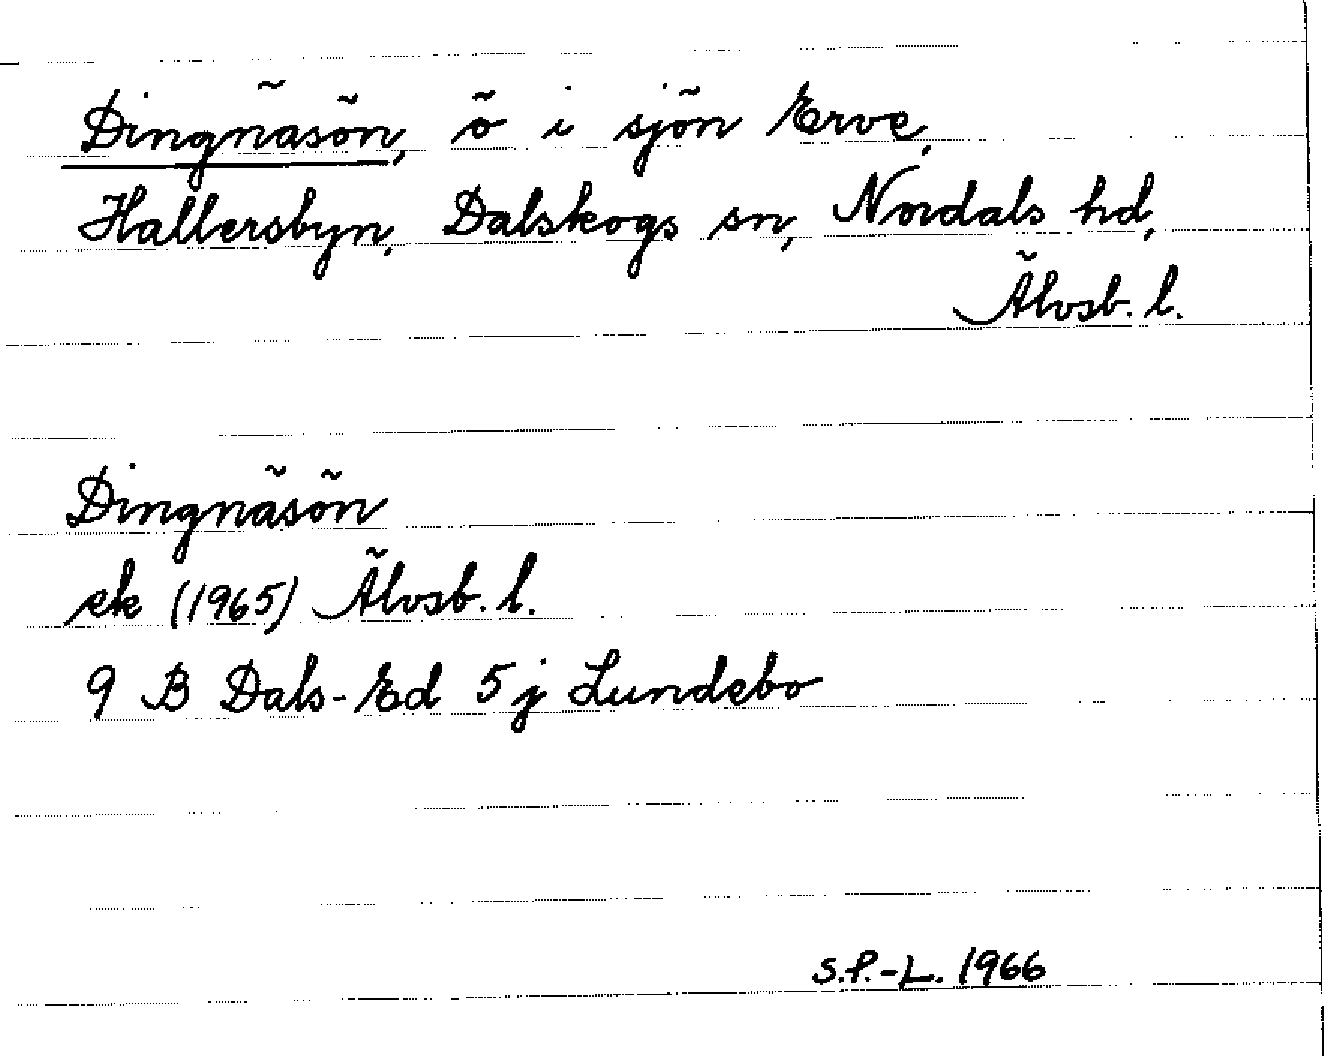 Dingnäsön, ö i sjön Erve,
Hallersbyn, Dalskogs sn, Nordals hd,
Älvsb. l.
Dingnäsön
ek (1965) Älvsb. l.
9 B Dals-Ed 5 j Lundebo
S.P.-L. 1966